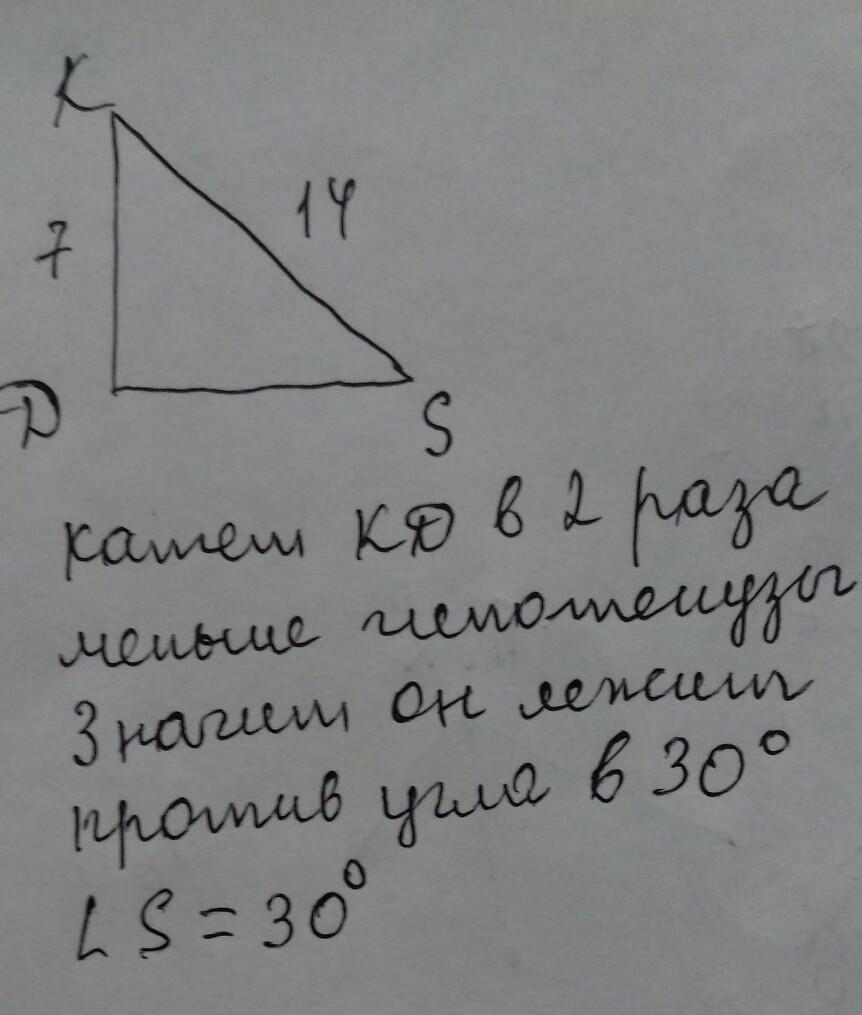 K
14
7
D
S
катет KD в 2 раза
меньше гипотенузы
Значит он лежит
против угла в 30°
∠ S = 30°